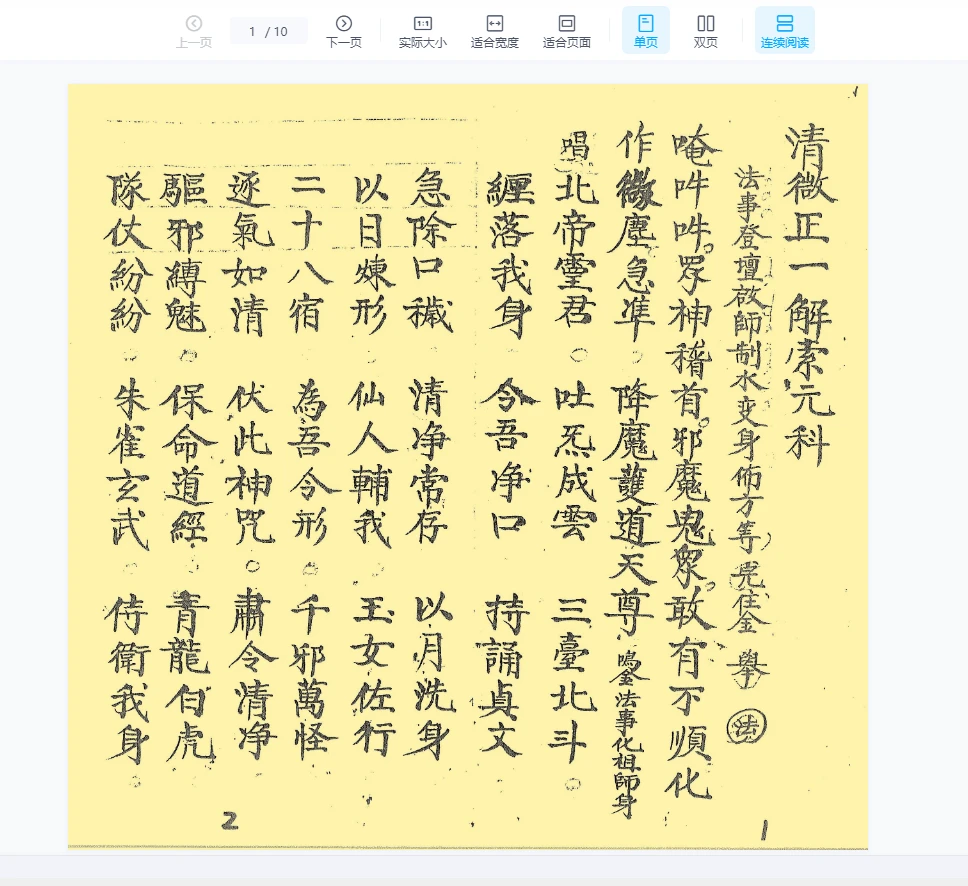 上一页
1 / 10
下一页
1:1
实际大小
适合宽度
适合页面
单页
双页
连续阅读
1
清微正一解索元科
法事登壇啟師制水变身佈方等完住金 舉 法
唵吽吽。眾神稽首。邪魔鬼眾。敢有不順化
作微塵急準 降魔護道天尊 鳴金法事化祖師身
唱北帝靈君○吐炁成雲 三臺北斗○
纒落我身 令吾净口 持誦貞文
急除口穢 清净常存 以月洗身
以日煉形 仙人輔我 玉女佐行
二十八宿 為吾令形○千邪萬怪
逐氣如清 伏此神咒○肅令清净
驅邪縛魅○保命道經 青龍白虎
隊仗紛紛○朱雀玄武○侍衛我身
1
2